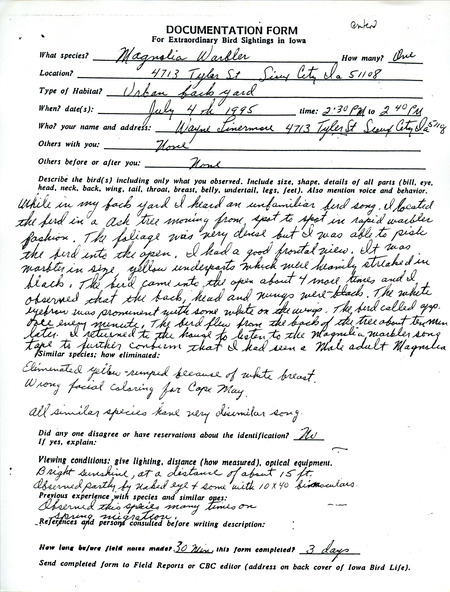 enter
DOCUMENTATION FORM
For Extraordinary Bird Sightings in Iowa
What species? Magnolia Warbler How many? One
Location? 4713 Tyler St Sioux City Ia 51108
Type of Habitat? Urban back yard
When? date(s): July 4th 1995 time: 2:30 PM to 2 40 PM
Who? your name and address: Wayne Livermore 4713 Tyler St Sioux City Ia 51108
Others with you: None
Others before or after you: None
Describe the bird(s) including only what you observed. Include size, shape, details of all parts (bill, eye,
head, neck, back, wing, tail, throat, breast, belly, undertail, legs, feet). Also mention voice and behavior.
While in my back yard I heard an unfamiliar bird song. I located
the bird in a Ash tree moving from spot to spot in rapid warbler
fashion. The foliage was very dense but I was able to pish
the bird into the open. I had a good frontal view. It was
warbler in size, yellow underparts which were heavily streaked in
black. The bird came into the open about 4 more times and I
observed that the back, head and wings were black. The white
eyebrow was prominent with some white on the wings. The bird called app.
once every minute. The bird flew from the back of the tree about ten min
later. I returned to the house to listen to the Magnolia warbler song
tape to further confirm that I had seen a Male adult Magnolia
Similar species: how eliminated:
Eliminated yellow rumped because of white breast.
Wrong facial coloring for Cape May.
All similar species have very dissimilar song.
Did any one disagree or have reservations about the identification? No
If yes, explain:
Viewing conditions: give lighting, distance (how measured), optical equipment.
Bright sunshine, at a distance of about 15 ft.
Observed partly by naked eye & some with 10 X 40 binoculars.
Previous experience with species and similar ones:
Observed this species many times on
spring migration.
References and persons consulted before writing description:
How long before field notes made? 30 Min. this form completed? 3 days
Send completed form to Field Reports or CBC editor (address on back cover of Iowa Bird Life).